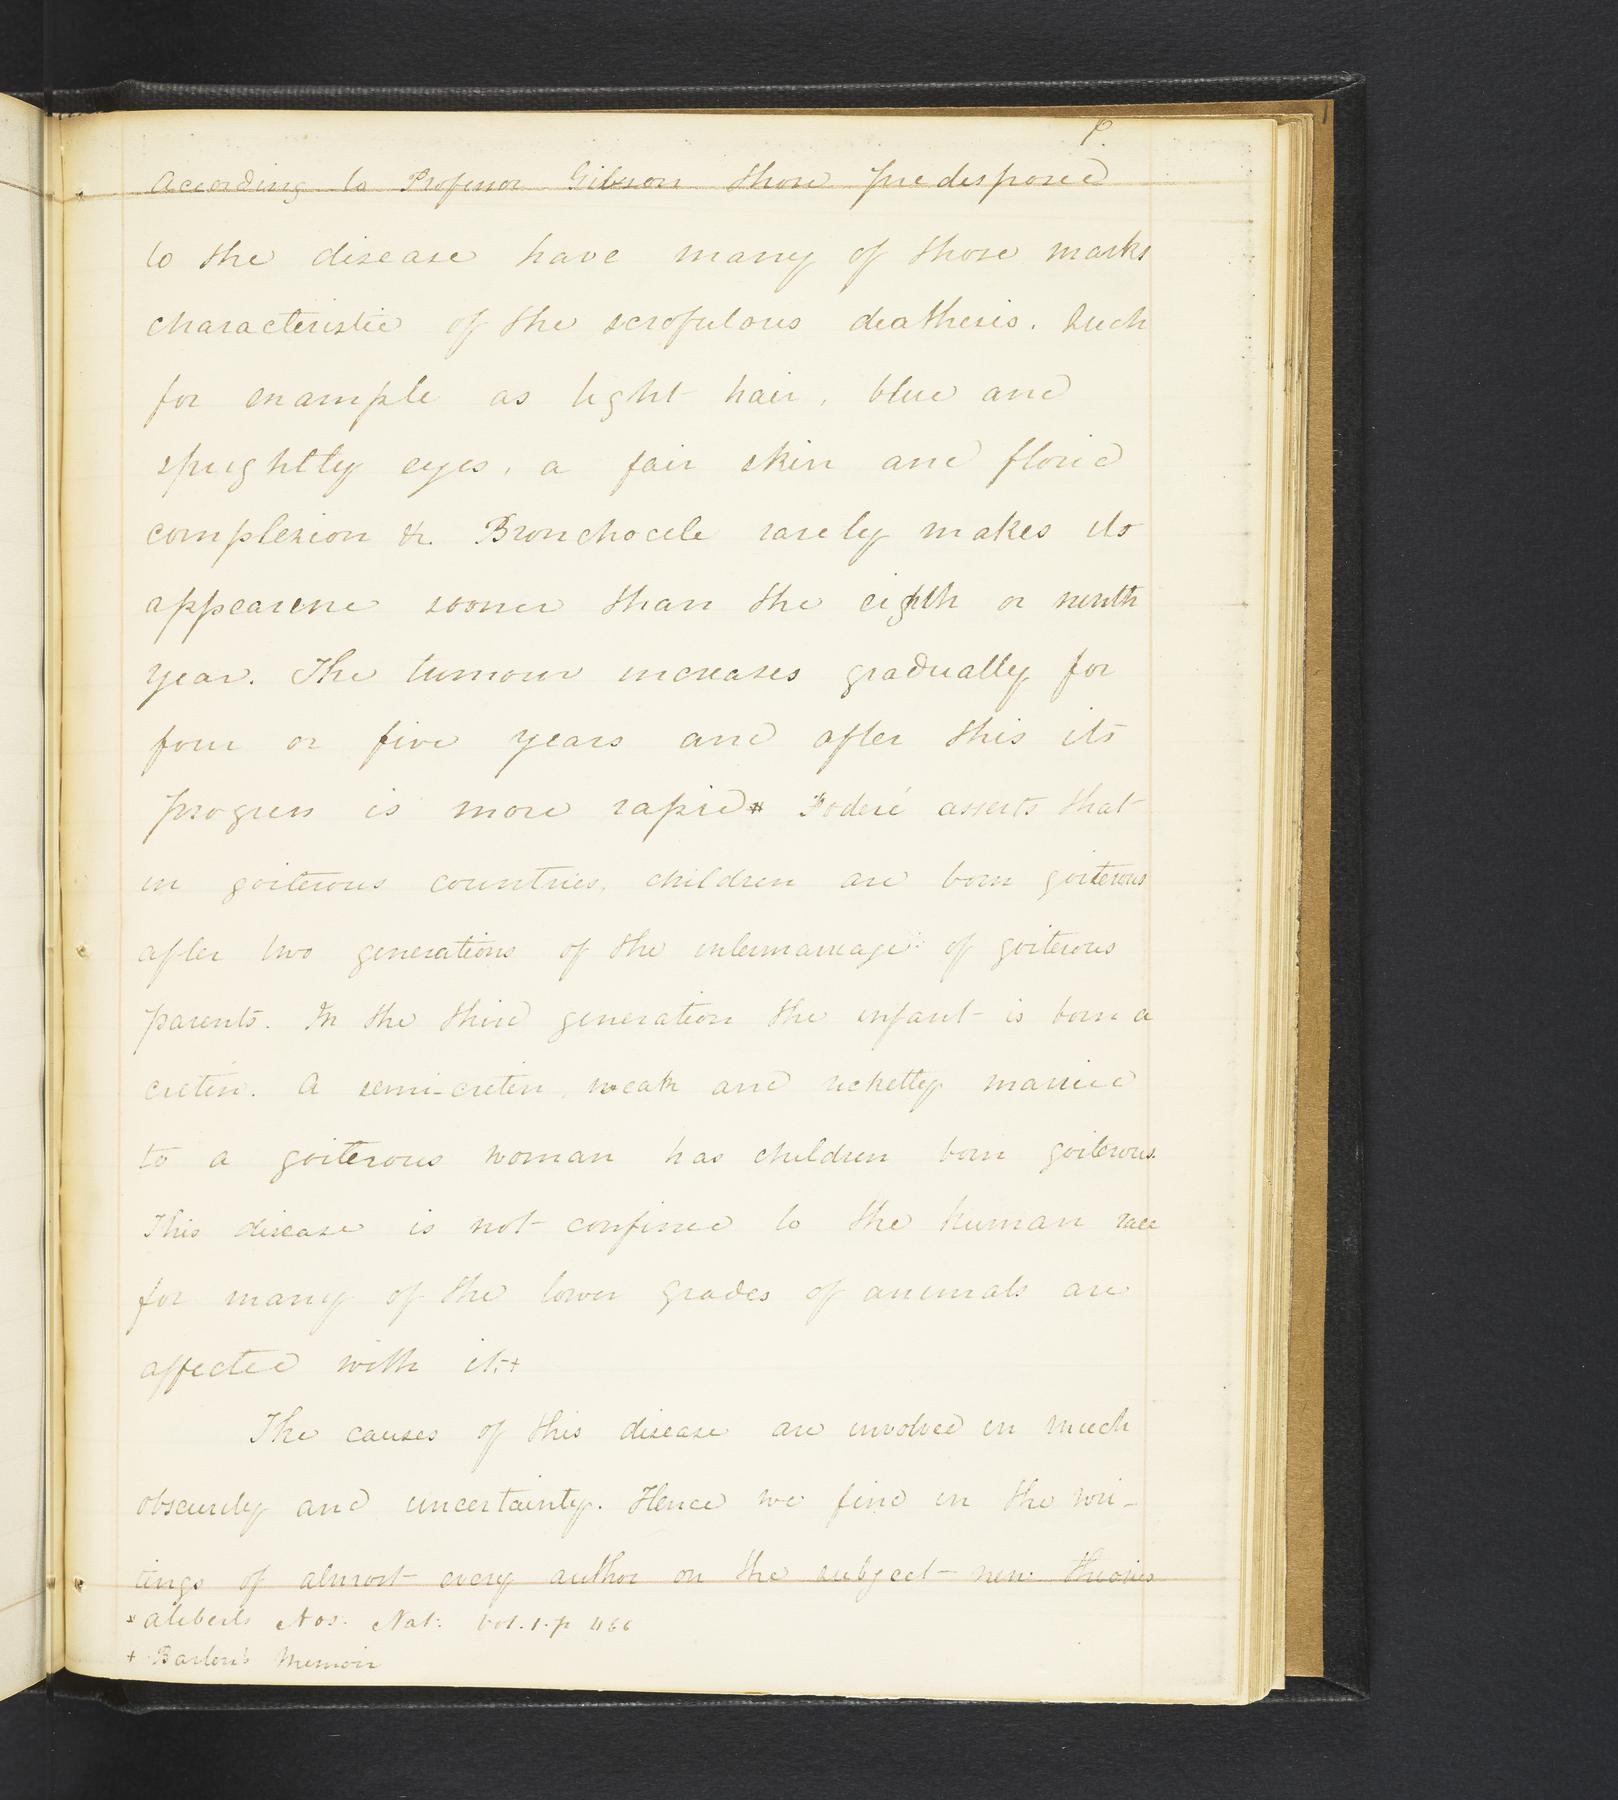 9.
According to Professor Gibson those predisposed
to the disease have many of those marks
characteristic of the scrofulous deathesis. Such
for example as light hair, blue and
sprightly eyes, a fair skin and florid
complexion &c. Bronchocele rarely makes its
appearene sooner than the eighth or ninth
year. The tumour increases gradually for
four or five years and after this its
progress is more rapid* Foderé asserts that
in goiterous countries, children are born goiterous
after two generations of the intermarriage of goiterous
parents. In the third generation the infant is born a
cretin. A semi-cretin, weak and ricketty married
to a goiterous woman has children born goiterous.
This disease is not confined to the human race
for many of the lower grades of animals are
affected with it.+
The causes of this disease are involved in much
obscurity and uncertainty. Hence we find in the wri-
tings of almost every author on the subject new theories
* Aliberts Nos. Nat. Vol. 1. p 466
+ Barton's Memoir